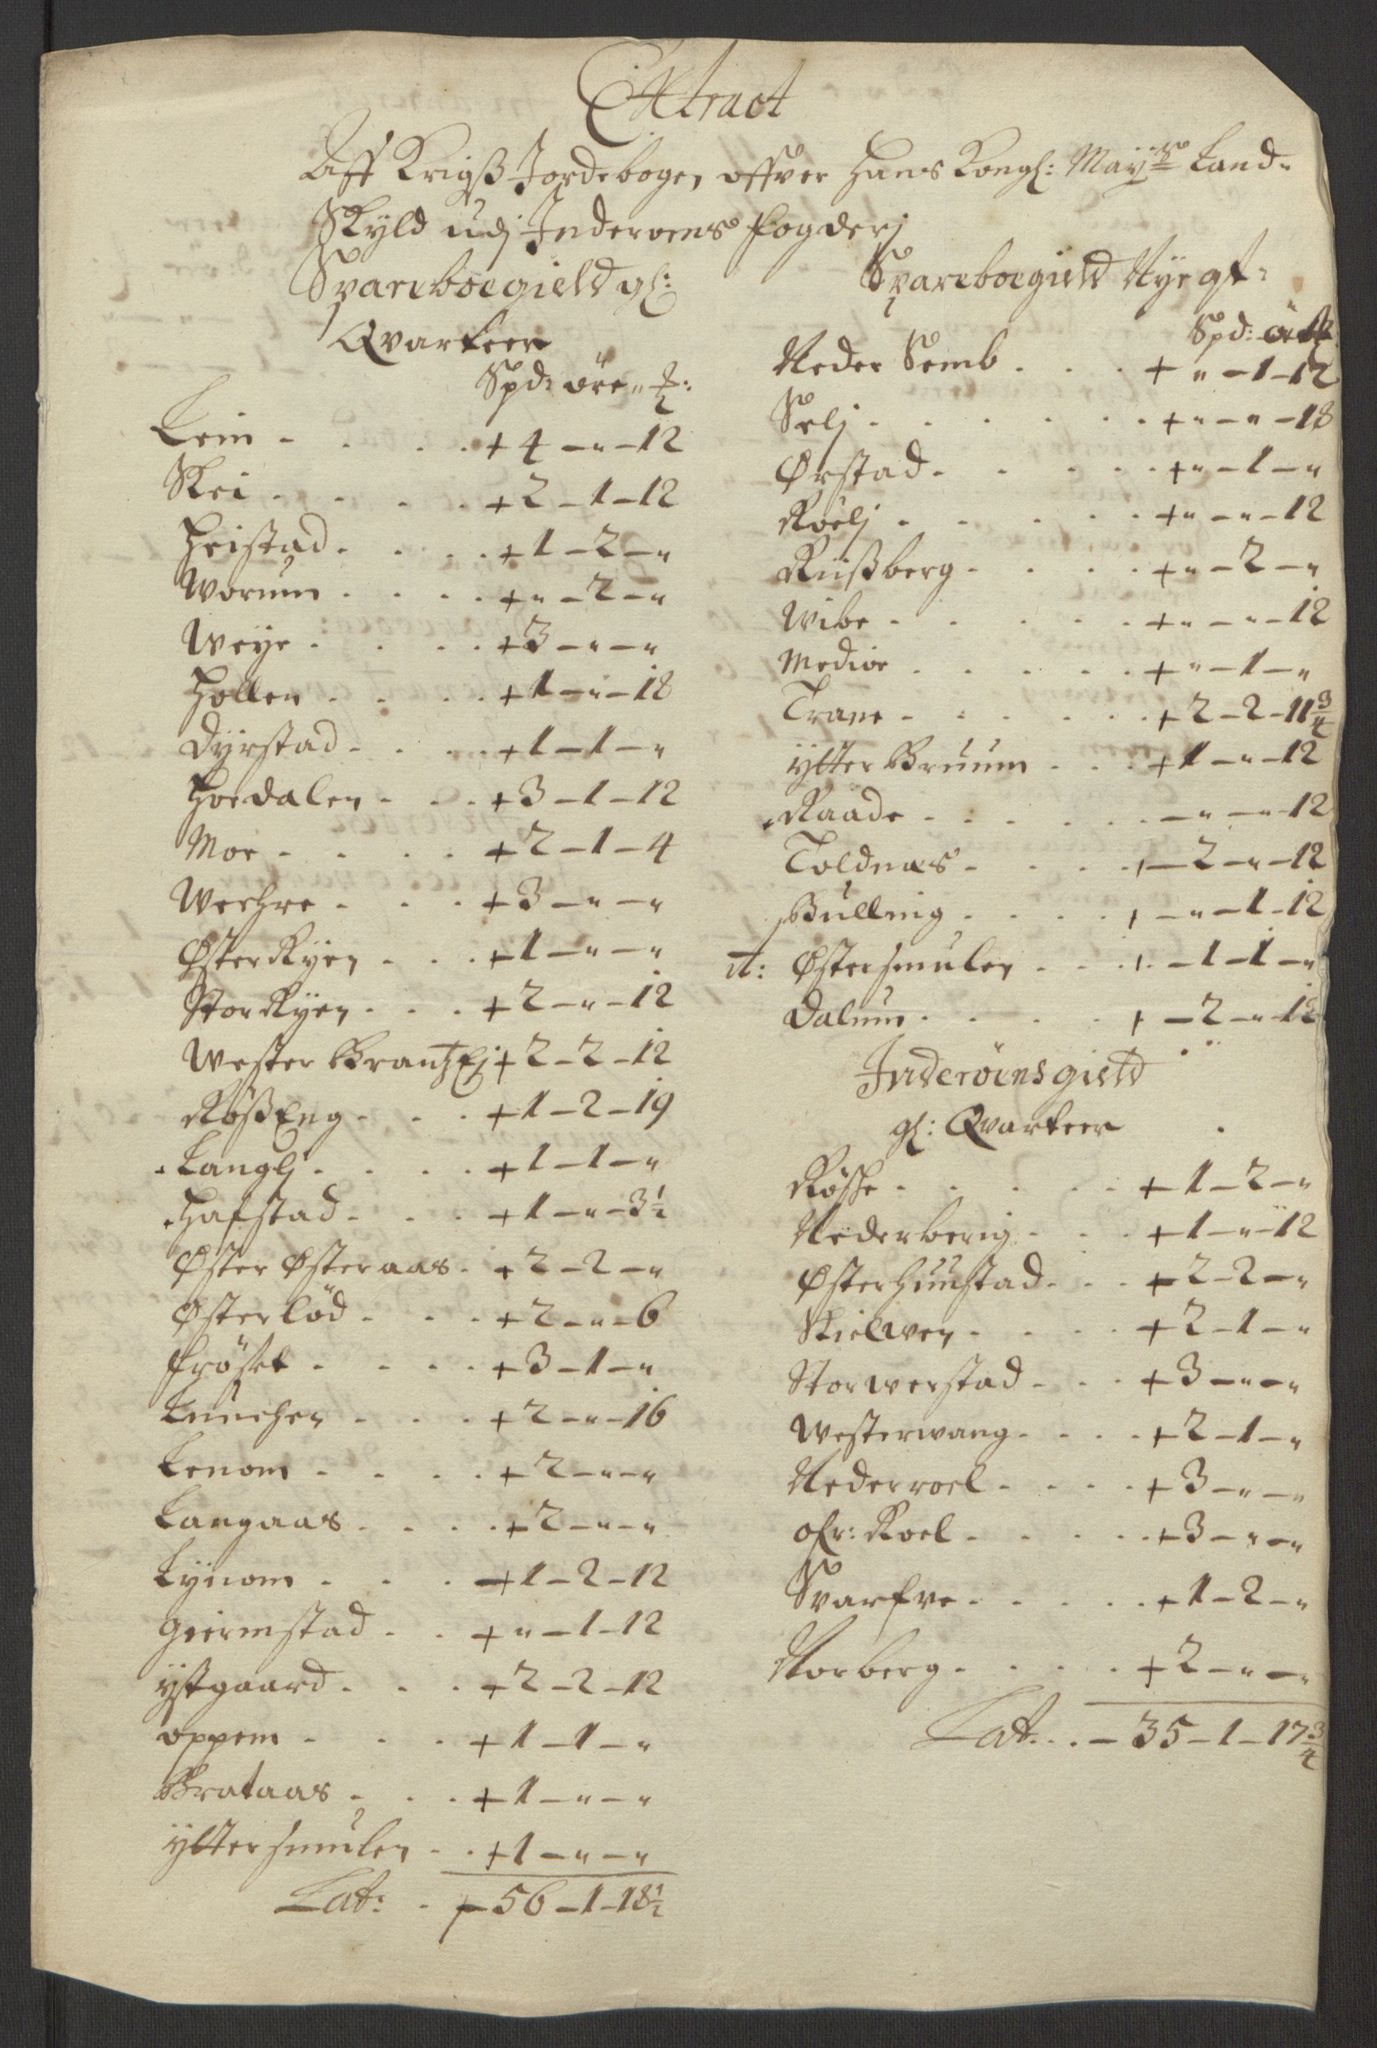 Extract
Aff Krigß Jordebogen offver Hans Kongl: Mayts Land-
Skyld udj Inderøens fogderj
Spareboegield gl:
Qvarteer
Spd: öre "
Lein - + 4 — " — 12
Skei - + 2 — 1 — 12
Heistad - + 1 — 2 — "
Worum - + " — 2 — "
Weye - + 3 — " — "
Hollen - + 1 — " — 18
Dyrstad - + 1 — 1 — "
Hoedalen - + 3 — 1 — 12
Moe - + 2 — 1 — 4
Wechre - + 3 — " — "
ØsterKyen - + 1 — " — "
StorKyen - + 2 — " — 12
Wester BrantzEj + 2 — 2 — 12
RößEng - + 1 — 2 — 19
Langlj - + 1 — 1 — "
Hafstad - + 1 — " — 3½
Øster Østeraas - + 2 — 2 — "
Østerlöd - + 2 — " — 6
fröset - + 3 — 1 — "
Lunchen - + 2 — " — 16
Lenom - + 2 — " — "
Langaas - + 2 — " — "
Lynom - + 1 — 2 — 12
Geermstad - + " — 1 — 12
ystgaard - + 2 — 2 — 12
oppem - + 1 — 1 — "
Brataas - + 1 — " — "
yttersmulen - + 1 — " — "
Lat: - 56 — 1 — 18½
Sparboegield Nye qt:
Spd:
Neder Semb - + " — 1 — 12
Selj - + " — " — 18
Ørstad - + " — 1 — "
Röelj - + " — " — 12
Rüßberg - + " — 2 — "
Wibe - + " — " — 12
Medioe - + " — 1 — "
Trane - + 2 — 2 — 11¾
ytter Bruum - + 1 — " — 12
Raade - — " — " — 12
Toldnæs - + — 2 — " — 12
Bulling - + — " — 1 — 12
it: Østersmulen - + — 1 — 1 — "
Dalum - + — 2 — " — 12
Inderöens gield
gl: Qvarteer
Rösse - + 1 — 2 — "
Nederberig - + 1 — " — 12
Østerhuustad - + 2 — 2 — "
Skielwen - + 2 — 1 — "
Storwerstad - + 3 — " — "
Westerwang - + 2 — 1 — "
Nederroel - + 3 — " — "
ofr: Roel - + 3 — " — "
Svarfve - + 1 — 2 — "
Norberg - + 2 — " — "
Lat - 35 — 1 — 17¾